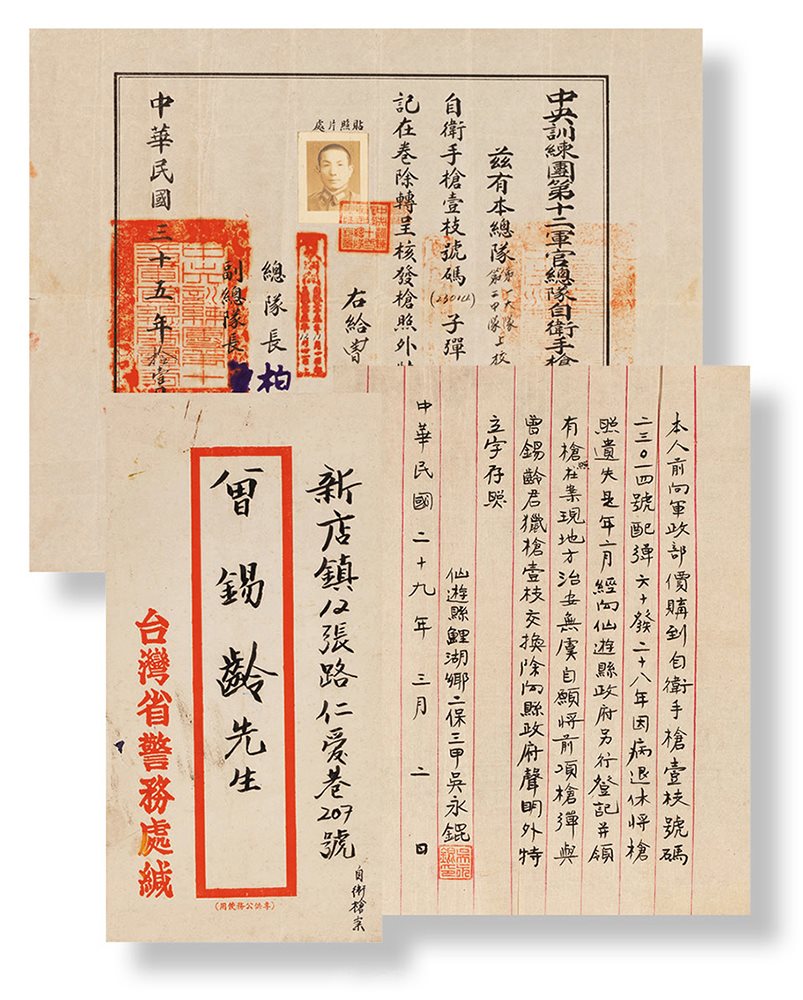 中央訓練團第十二軍官總隊自衛手槍
茲有本總隊第一大隊第二中隊上校
自衛手槍壹枝號碼(23014)子彈
記在卷除轉呈核發槍照外
右給曾
貼照片處
總隊長 柏
副總隊長
中華民國三十五年拾壹
本人前向軍政部價購到自衛手槍壹枝號碼
二三〇一四號配彈六十發二十八年因病退休將槍
照遺失是年二月經向仙遊縣政府另行登記并領
有槍照在案現地方治安無虞自願將前項槍彈與
曾錫齡君獵槍壹枝交換除向縣政府聲明外特
立字存照
仙遊縣鯉湖鄉二保三甲吳永錕
中華民國二十九年三月二日
新店鎮12張路仁愛巷207號
曾錫齡先生
台灣省警務處緘
(專供公務使用)
自衛槍案